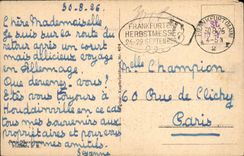 30.8.26.
Chère Mademoiselle
Je suis sur la route du
retour après un court
mais délicieux voyage
en Allemagne.
Que devenez-vous!
Etes vous toujours à
Houdainville en ce cas
tous mes souvenirs aux
propriétaires et pour vous
mes bonnes amitiés.
Suzanne
FRANKFURTER
HERBSTMESSE
26-29 SEPTEMBER
FRANKFURT
Melle Champion
60 Rue de Clichy
Paris